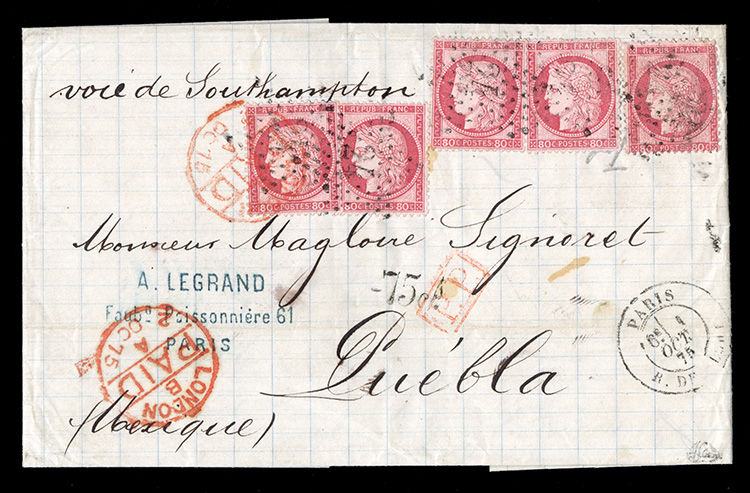 voie de Southampton
REPUB·FRANC
80c POSTES 80c
REPUB·FRANC
80c POSTES 80c
REPUB·FRANC
80c POSTES 80c
REPUB·FRANC
80c POSTES 80c
REPUB·FRANC
80c POSTES 80c
PAID
OC 75
Monsieur Magloire Signoret
A. LEGRAND
Faubg Poissonnière 61
PARIS
75
PP
PARIS
6E 4
OCT
75
R. DE
LONDON
B
PAID
A
2 OC 75
Puébla
(Mexique)